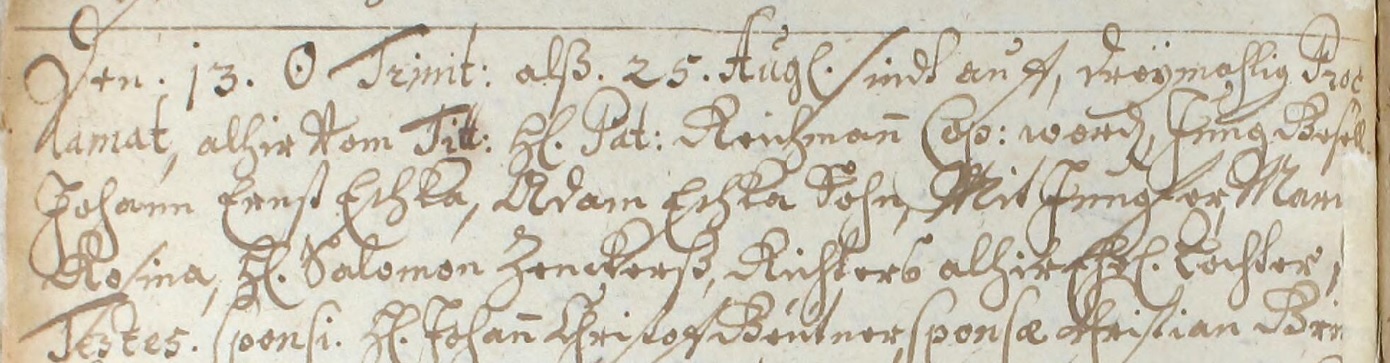 Den: 13. ☉ Trinit: alß. 25. Aug. sindt auff, dreÿmahlig Proc
lamat, alhir Vom Titt: H. Pat: Reichmañ Cop: word, Jung Gesell
Johann Ernst Eschka, Adam Eschka Sohn, Mit Jungfer, Mari
Rosina, H. Salomon Zenckerß, Richters alhir Ehl. Tochter,
Testes. sponsi. H. Johañ Christoff Beutner, sponsæ Christian